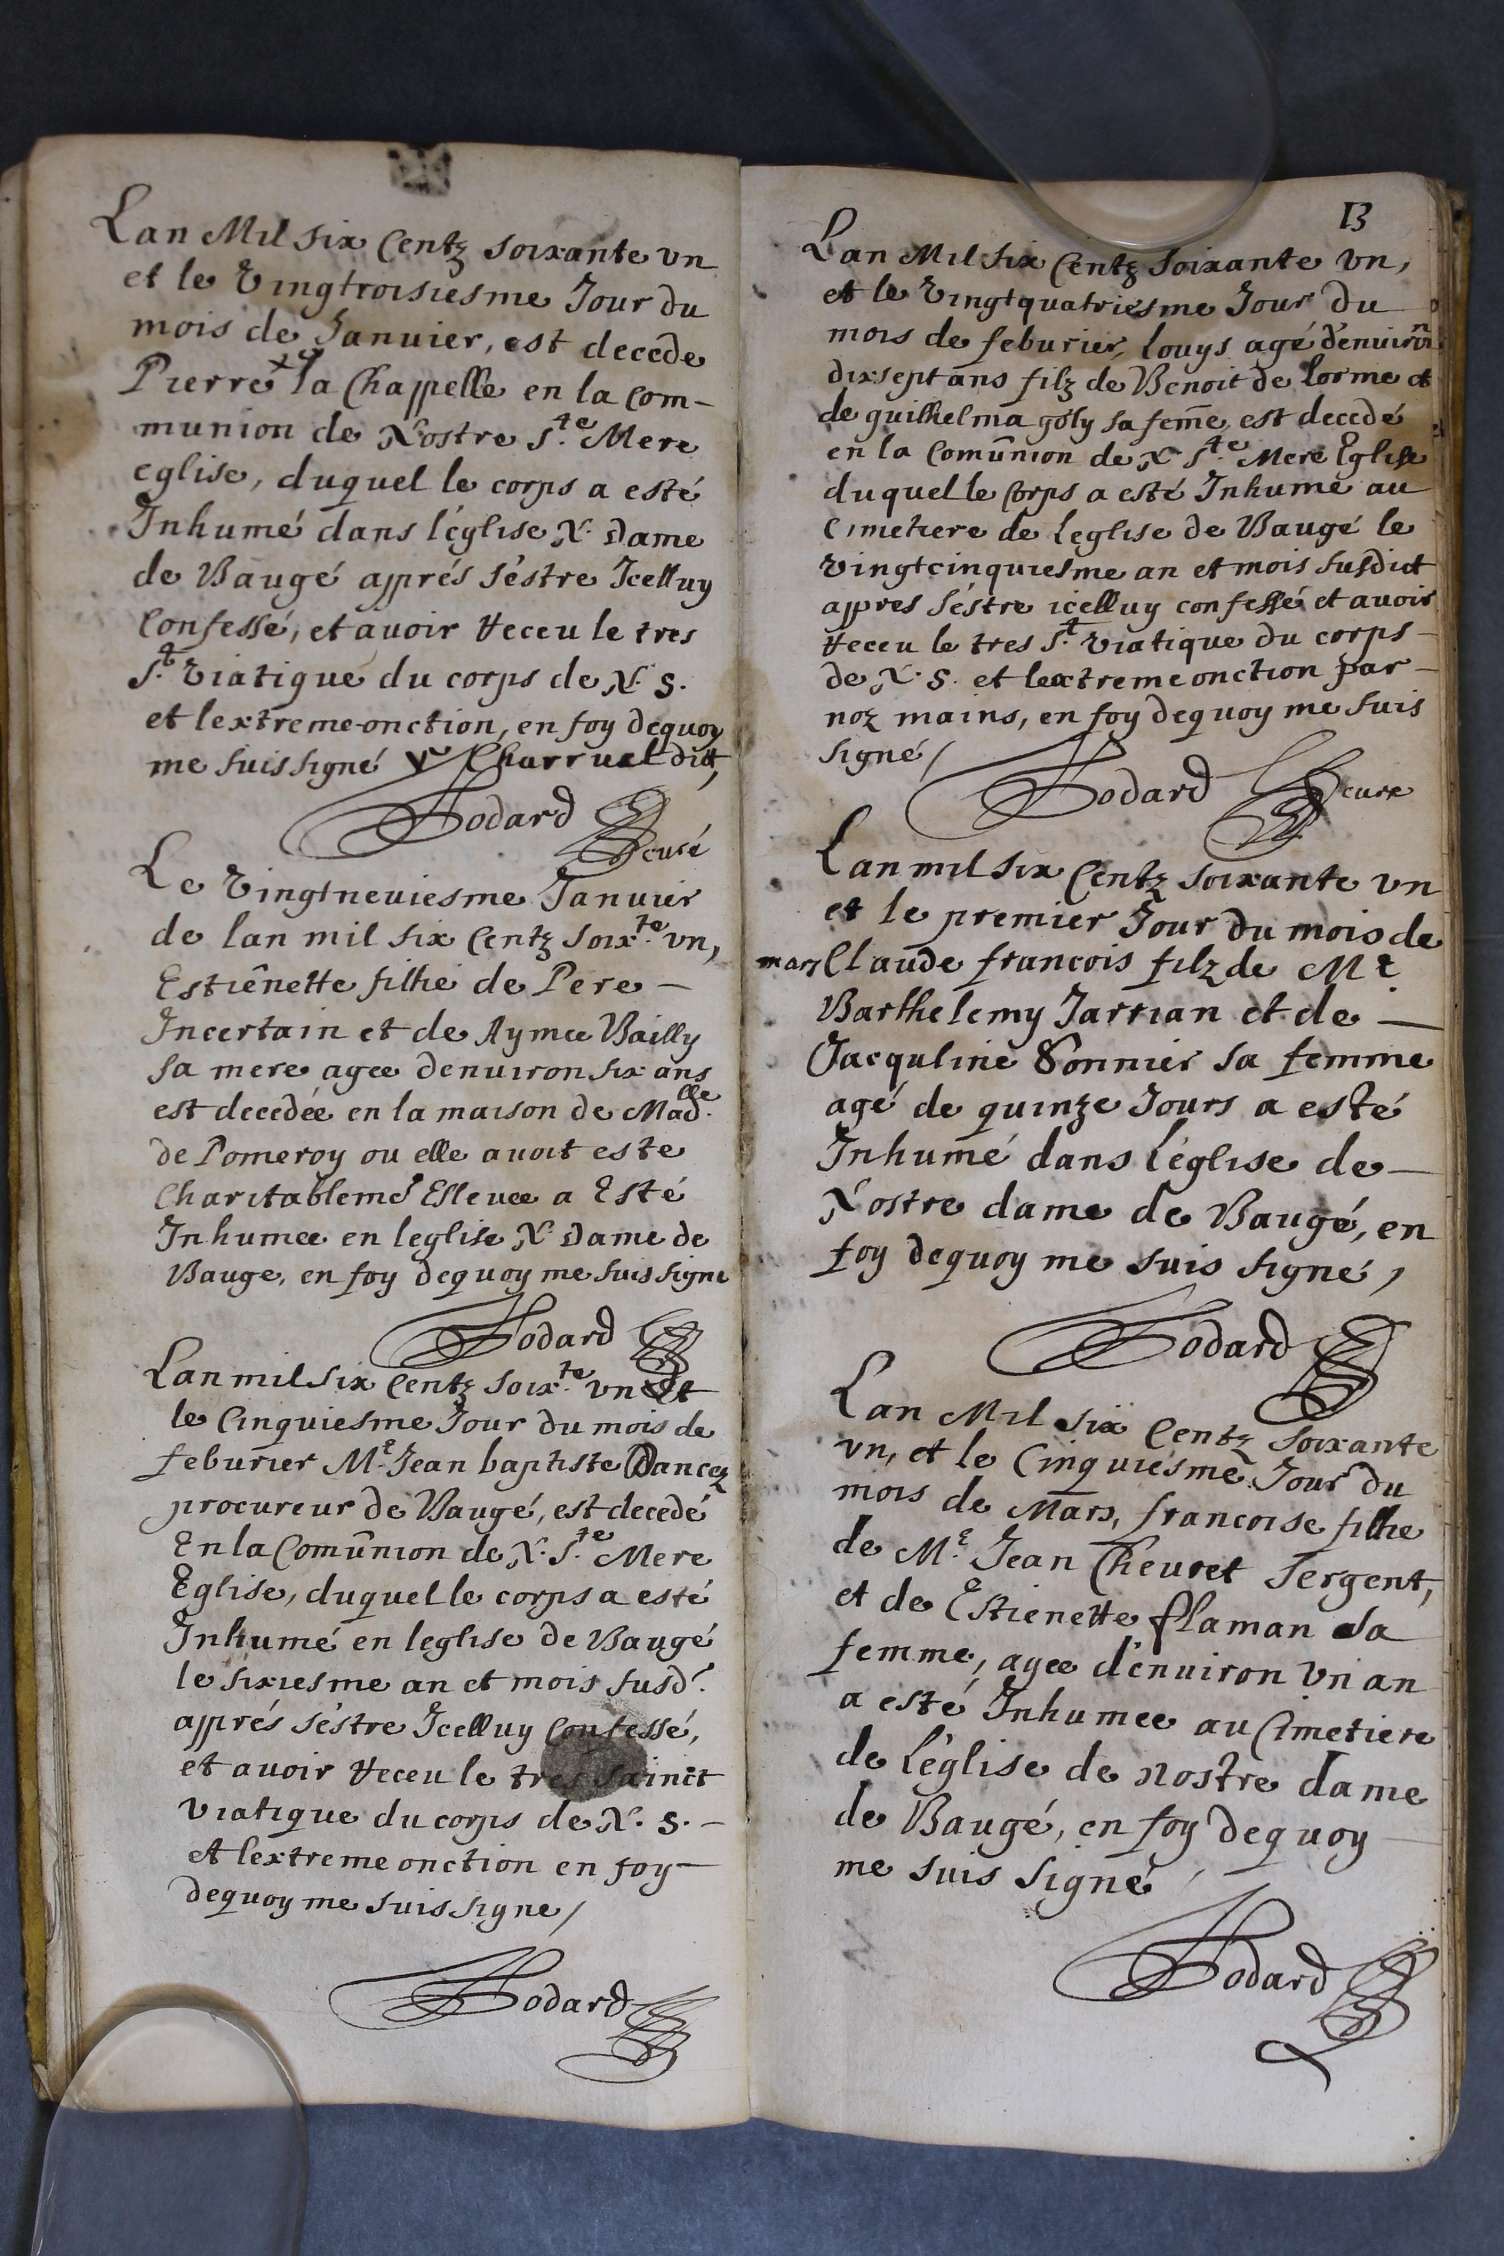 Lan Mil six Centz soixante un
et le Vingtroisiesme Jour du
mois de Januier, est decede
Pierre la Chappelle en la com-
munion de Nostre S.te Mere
eglise, duquel le corps a esté
Inhumé dans l'église N. Dame
de Baugé apprés s'éstre Icelluy
Confessé, et avoir Receu le tres
S.t Viatique du corps de N. S.
et lextreme-onction, en foy dequoy
me suis signé Charruel dict,
Bodard
curé
Le Vingtneuiesme Januier
de lan mil six Centz soix.te vn,
Estiēnette filhe de Pere -
Incertain et de Aymee Bailly
sa mere agee denuiron six ans
est decedée en la maison de Mad.lle
de Pomeroy ou elle avoit este
Charitableme.t Esleuee a Esté
Inhumee en leglise N. Dame de
Bauge, en foy dequoy me suis signe
Bodard
Lan mil six Centz soix.te vn Et
le Cinquiesme Jour du mois de
feburier M.e Jean baptiste Dancez
procureur de Baugé, est decedé
En la Comūnion de N. S.te Mere
Eglise, duquel le corps a esté
Inhumé en leglise de Baugé
le sixiesme an et mois susd.t
apprés s'éstre Icelluy Confessé,
et avoir Receu le tres sainct
Viatique du corps de N. S. -
et lextreme onction en foy -
dequoy me suis signe /
Bodard
13
Lan Mil six Centz soixante vn,
et le Vingtquatriesme Jour du
mois de feburier, louys agé d'enuiron
dixsept ans filz de Benoit de lorme et
de guilhelma goly sa fem̄e, est decedé
en la Comūnion de N. S.te Mere Eglise
duquel le Corps a esté Inhumé au
Cimetiere de Leglise de Baugé le
vingtcinquiesme an et mois susdict
appres s'éstre icelluy confessé et avoir
Receu le tres S.t viatique du corps -
de N. S. et lextreme onction par -
noz mains, en foy dequoy me suis
signé /
Bodard curé
Lan mil six Centz soixante vn
et le premier Jour du mois de
mars Claude francois filz de M.e
Barthelemy Jarrian et de -
Jacquline Sonnier sa femme
agé de quinze Jours a esté
Inhumé dans L'église de -
Nostre dame de Baugé, en
foy dequoy me suis signé,
Bodard
Lan Mil six Centz soixante
vn, et le Cinquiesme Jour du
mois de Mars, francoise filhe
de M.e Jean Cheuret Sergent,
et de Estienette flaman sa
femme, agee d'enuiron vn an
a esté Inhumee au Cimetiere
de l'église de nostre dame
de Baugé, en foy dequoy
me suis signé
Bodard